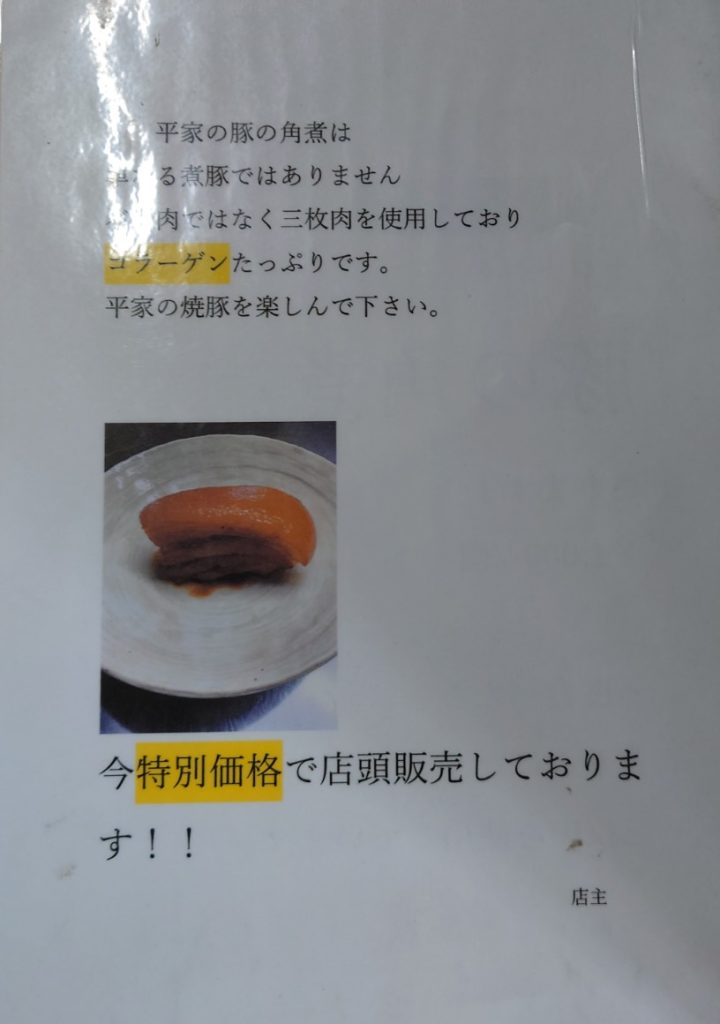 平家の豚の角煮は
る煮豚ではありません
肉ではなく三枚肉を使用しており
コラーゲンたっぷりです。
平家の焼豚を楽しんで下さい。
今特別価格で店頭販売しておりま
す！！
店主